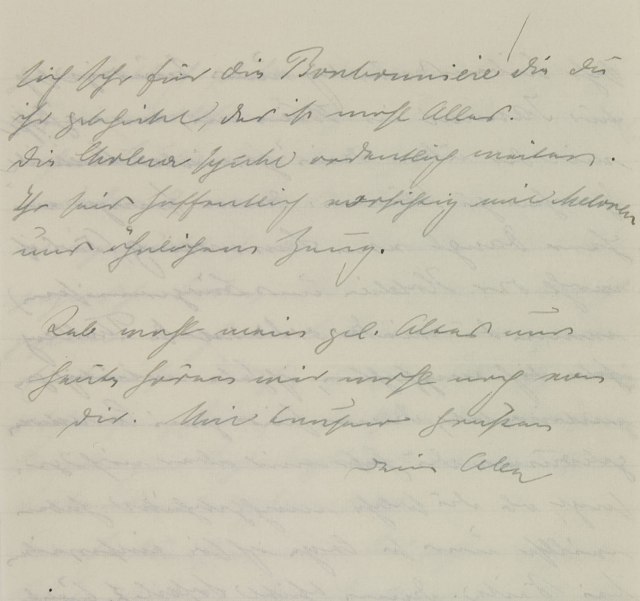 sich sehr für die Bonbonniere die du
ihr geschickt, das ist wohl Alles.
Die Cholera spukt ordentlich weiter.
Ihr seid hoffentlich vorsichtig mit Melonen
und ähnlichem Zeug.
Leb wohl mein gel. Alter und
heute hören wir wohl noch von
dir. Mit tausend Grüßen
dein Alex